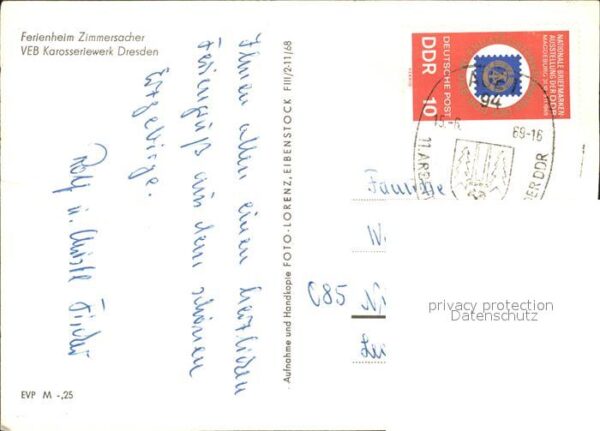 Ferienheim Zimmersacher
VEB Karosseriewerk Dresden
Ihnen allen einen herzlichen
Feriengruß aus dem schönen
Erzgebirge.
Rolf u. Christl
EVP M -,25
Aufnahme und Handkopie FOTO-LORENZ, EIBENSTOCK F III/2-11/68
DDR 10
DEUTSCHE POST
NATIONALE BRIEFMARKEN
AUSSTELLUNG DER DDR
94
15.-6. 69-16
11. ARB
DER DDR
Familie
W
C85 N
privacy protection
Datenschutz